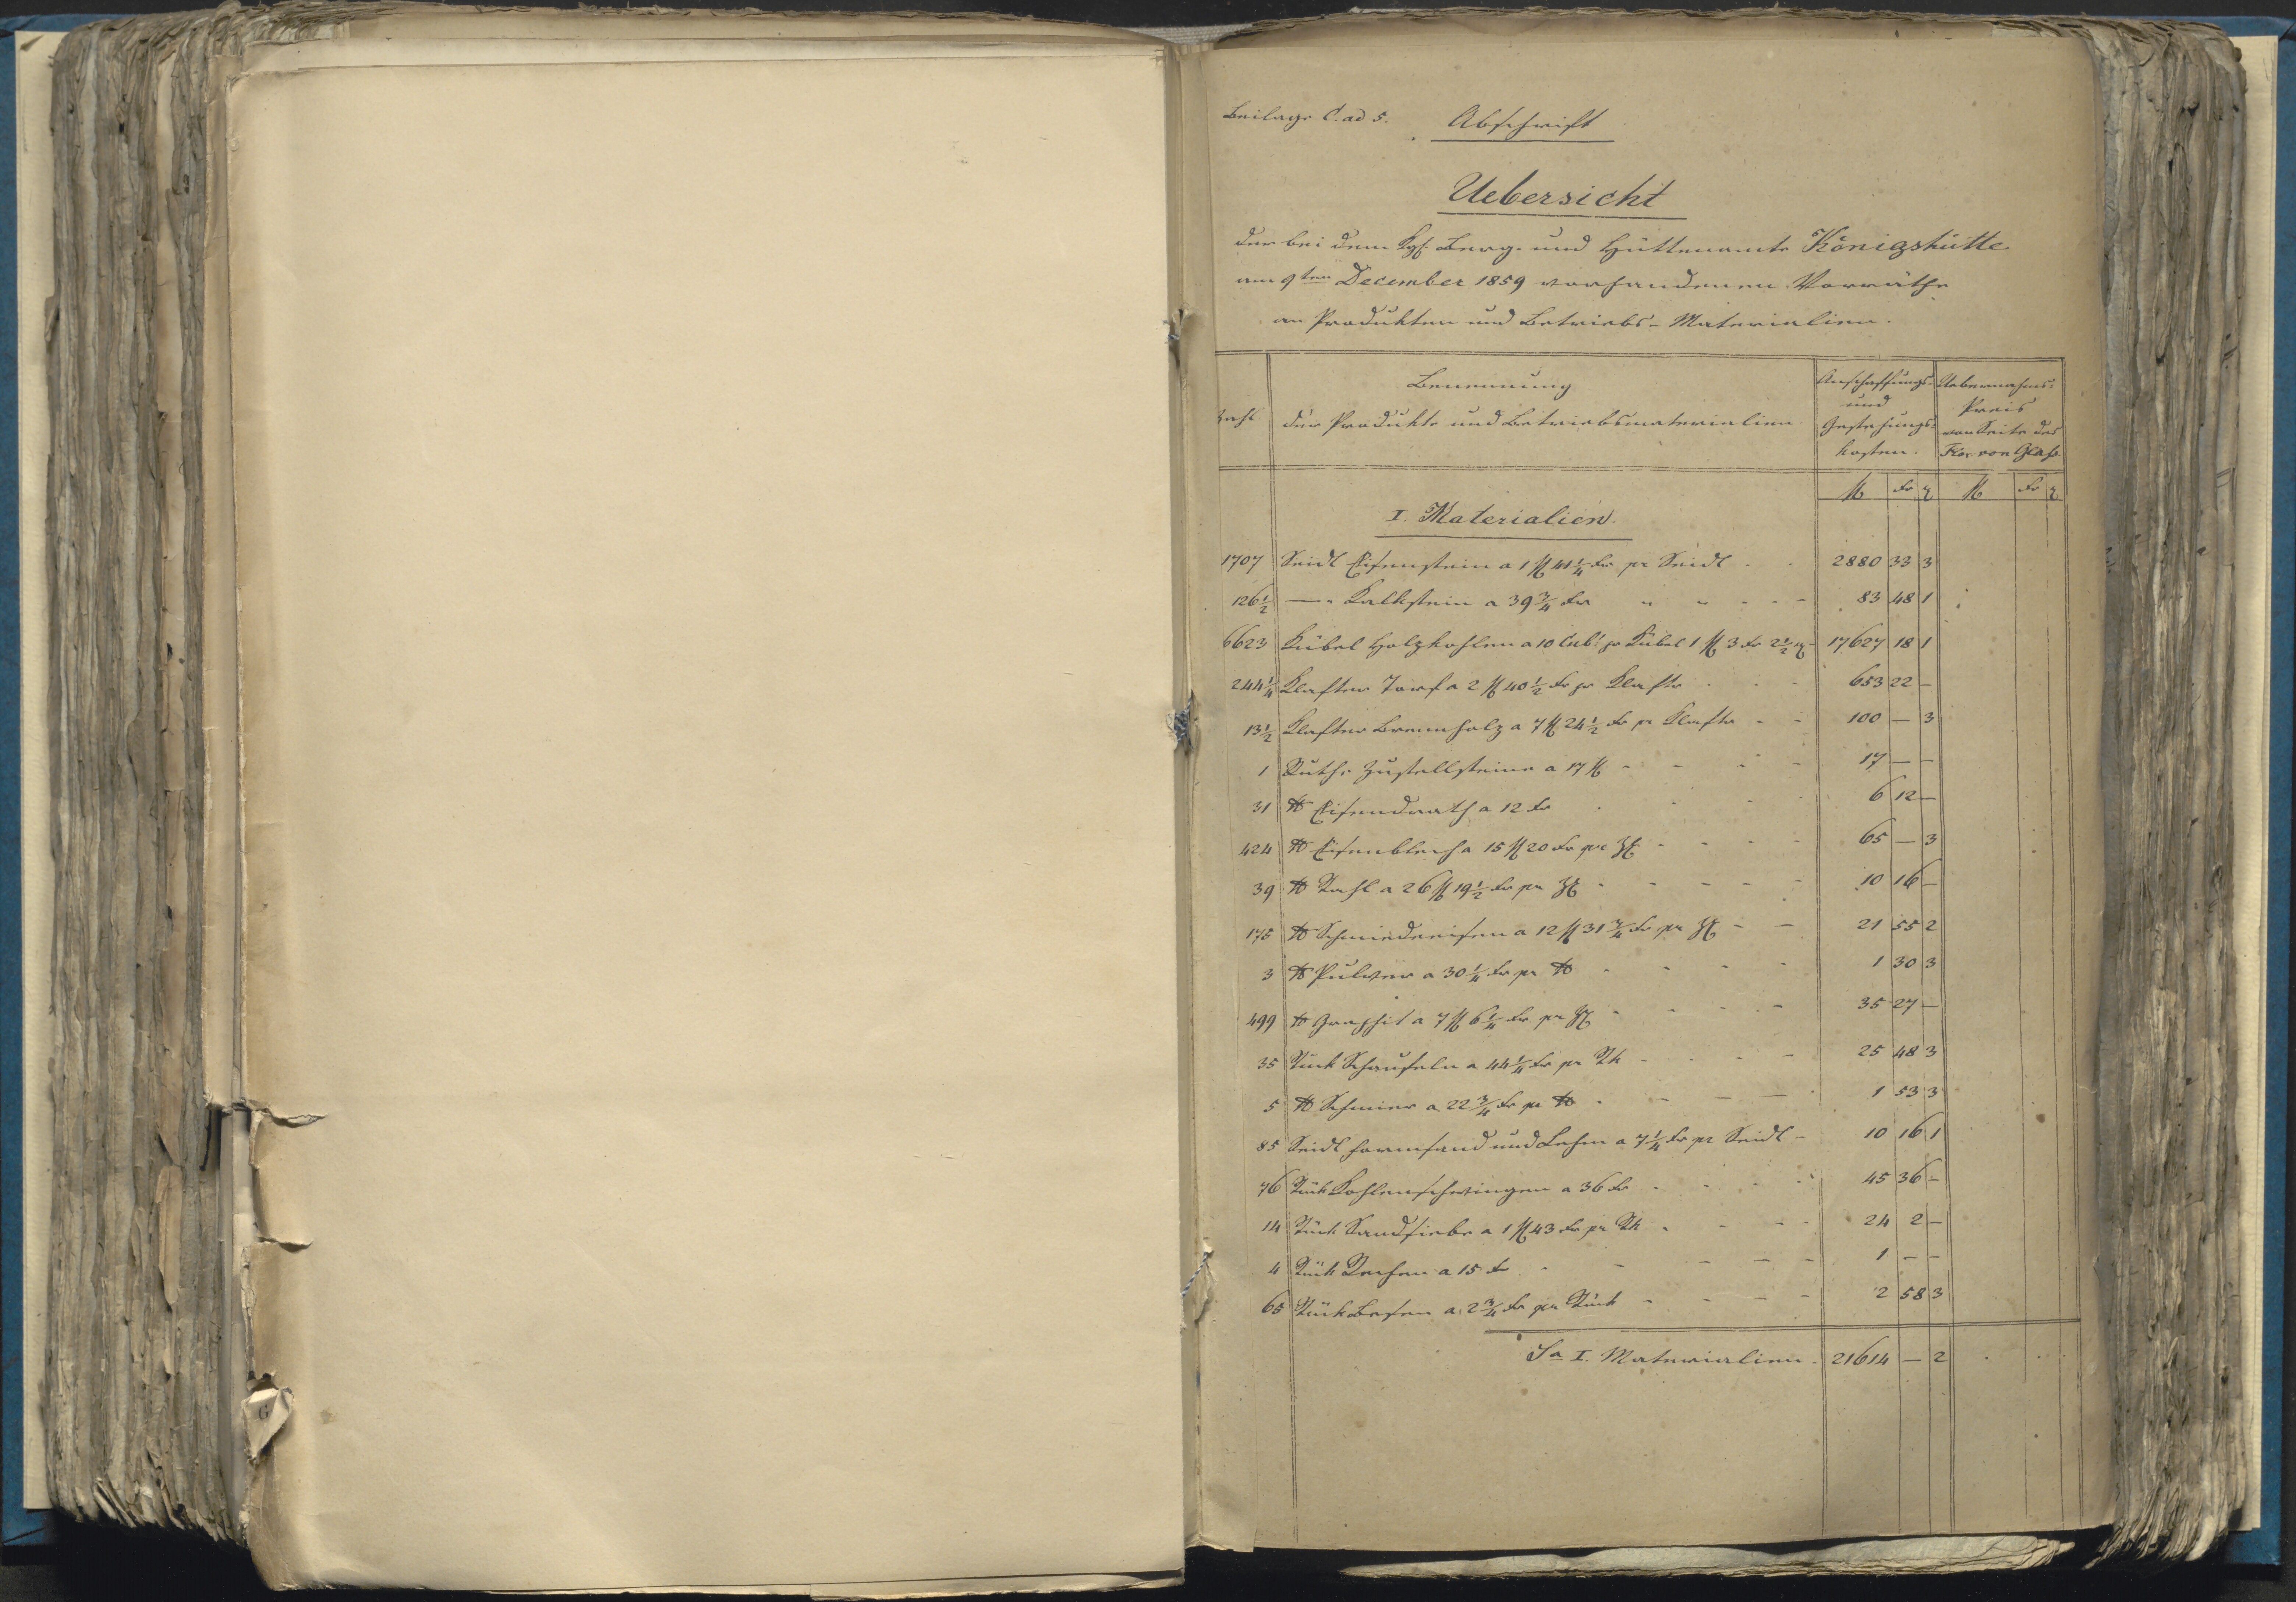 Beilage C. ad 5. Abschrift
Uebersicht
der bei dem Kgl. Berg- und Hüttenamte Königshütte
am 9ten December 1859 vorhandenen Vorräthe
an Produkten und Betriebs-Materialien.
Zahl
Benennung
der Produkte und Betriebsmaterialien.
Anschaffungs-
und
Gestehungs-
kosten.
Uebernahms-
Preis
von Seite des
Frn. von Glass
fl kr ₰ fl kr ₰
I. Materialien.
1707 Seidl Eisenstein a 1 fl 41 1/4 kr pr Seidl - - 2880 33 3
126 1/2 — " Kalkstein a 39 3/4 kr " " - - - 83 48 1
6623 Kübel Holzkohlen a 10 Cub.' pr Kübel 1 fl 3 kr 2 1/2 ₰ - 17627 18 1
244 1/4 Klafter Torf a 2 fl 40 1/2 kr pr Klafter - - - 653 22 —
13 1/2 Klafter Brennholz a 7 fl 24 1/2 kr pr Klafter - - 100 — 3
1 Ruthe Zustellsteine a 17 fl - - - - 17 — —
31 ℔ Eisendrath a 12 kr - - - - 6 12 —
424 ℔ Eisenblech a 15 fl 20 kr pr Ztr - - - - 65 — 3
39 ℔ Stahl a 26 fl 19 1/2 kr pr Ztr - - - - - 10 16 —
175 ℔ Schmiedeeisen a 12 fl 31 3/4 kr pr Ztr - - 21 55 2
3 ℔ Pulver a 30 1/4 kr pr ℔ - - - - 1 30 3
499 ℔ Graphit a 7 fl 6 1/4 kr pr Ztr - - - - 35 27 —
35 Stück Schaufeln a 44 1/4 kr pr Stk - - - - 25 48 3
5 ℔ Schmier a 22 3/4 kr pr ℔ - - - - 1 53 3
85 Seidl Formsand und Lehm a 7 1/4 kr pr Seidl - 10 16 1
76 Stück Kohlenschwingen a 36 kr - - - - 45 36 —
14 Stück Sandsiebe a 1 fl 43 kr pr Stk - - - - 24 2 —
4 Stück Rechen a 15 kr - - - - - 1 — —
65 Stück Besen a 2 3/4 kr pr Stück - - - - - 2 58 3
Sa I. Materialien. 21614 — 2
G